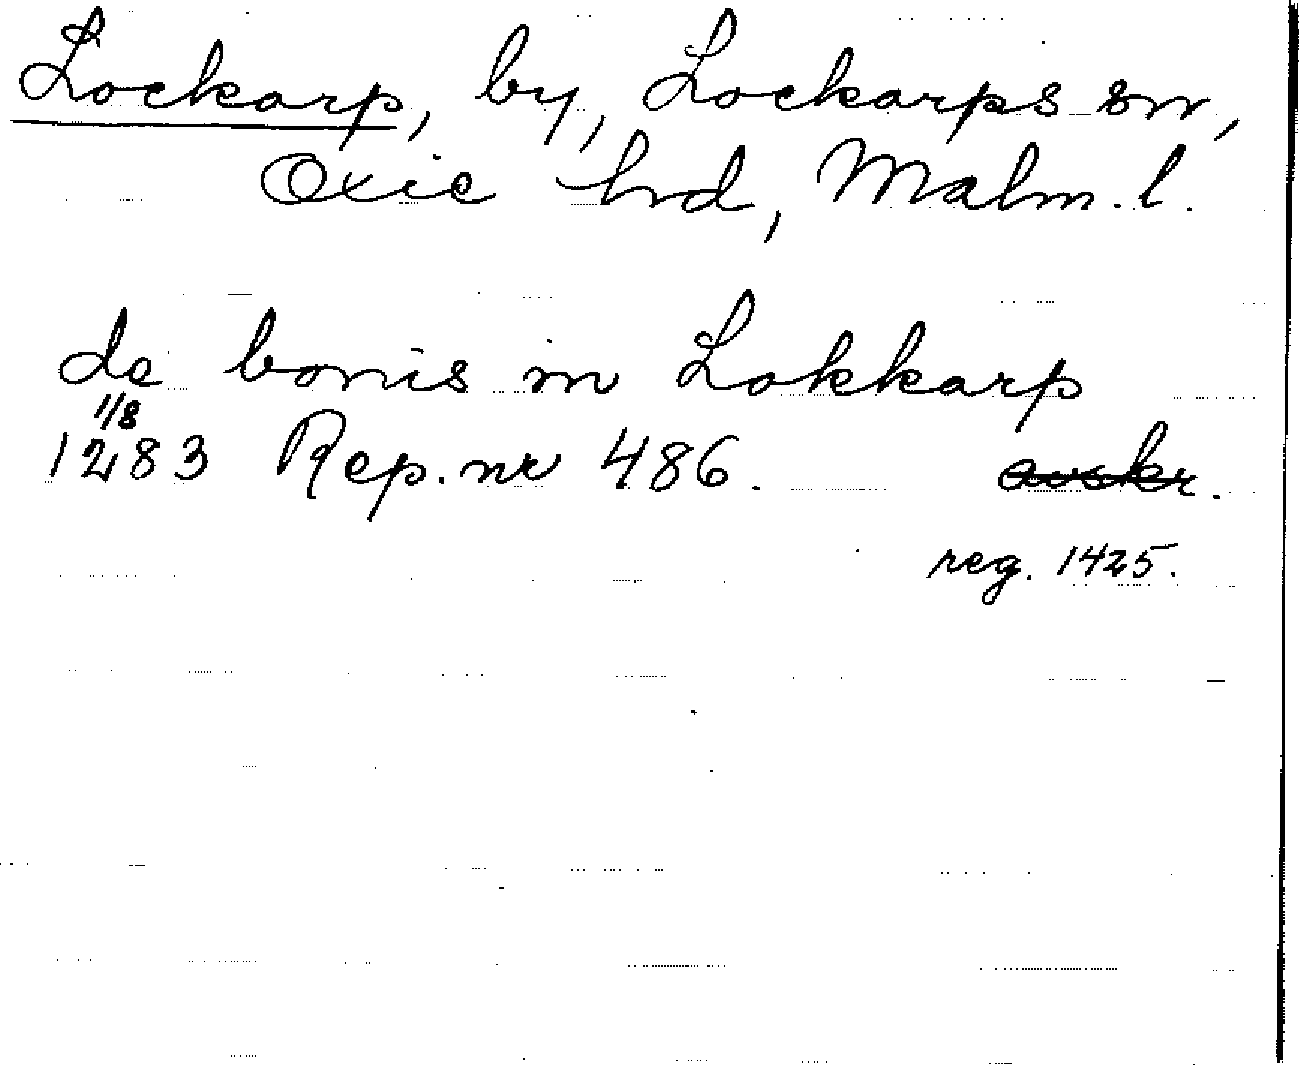 Lockarp, by, Lockarps sn,
Oxie hrd, Malm. l.
de bonis in Lokkarp
1/8
1283 Rep. nr 486. avskr.
reg. 1425.